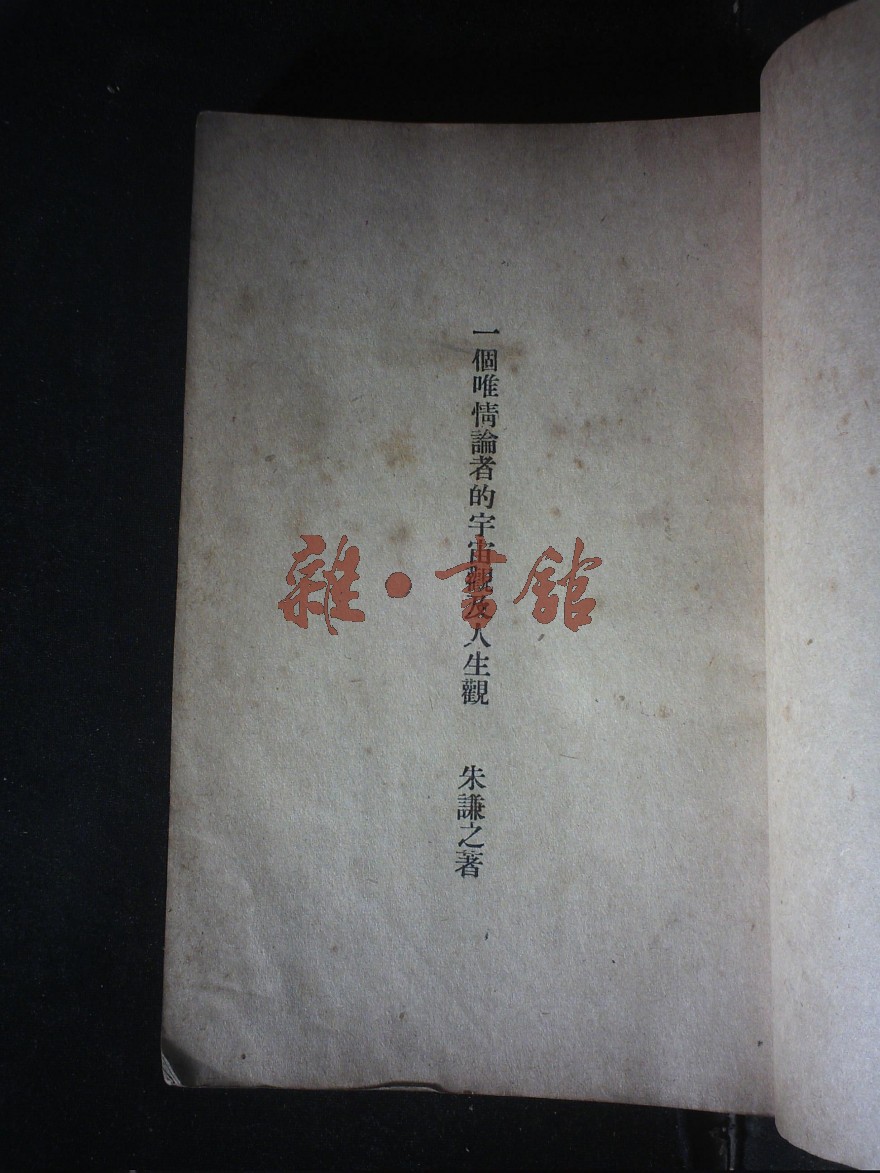 一個唯情論者的宇宙觀及人生觀 朱謙之著
雜·書館